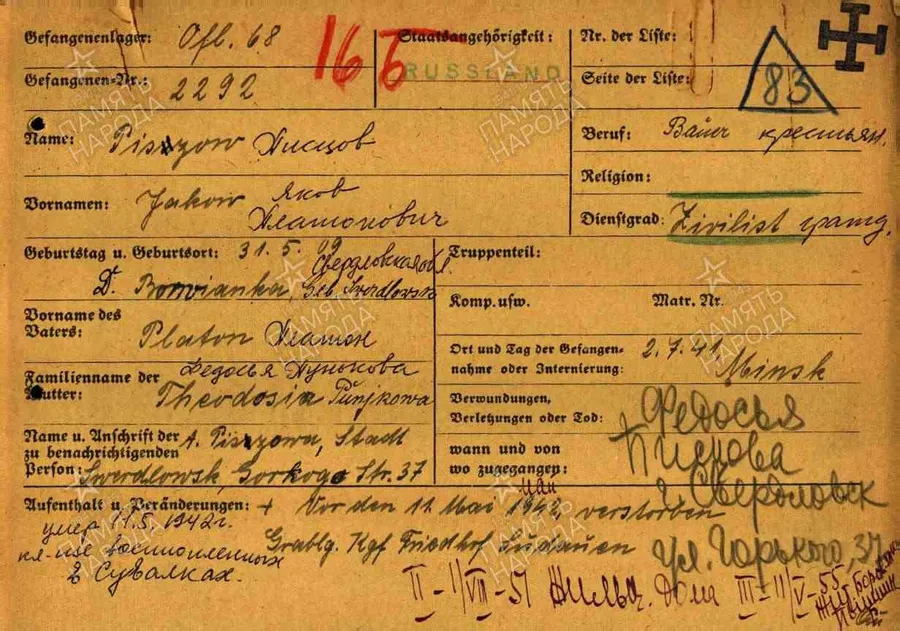 Gefangenenlager: Ofl. 68
16 Б
Staatsangehörigkeit:
RUSSLAND
Nr. der Liste:
Gefangenen-Nr.: 2292
Seite der Liste:
83
Name: Piszzow Писцов
Beruf: Bauer крестьян.
Religion:
Vornamen: Jakow Яков
Платонович
Dienstgrad: Zivilist гражд.
Geburtstag u. Geburtsort: 31. 5. 09
Свердловская обл.
D. Borovianka, Geb. Swerdlowsk
Truppenteil:
Komp. usw. Matr. Nr.
Vorname des
Vaters: Platon Платон
Ort und Tag der Gefangen-
nahme oder Internierung: 2. 7. 41. Minsk
Федосья Пунькова
Familienname der
Mutter: Theodosia Punjkowa
Verwundungen,
Verletzungen oder Tod:
Name u. Anschrift der
zu benachrichtigenden
Person: A. Piszzowa, Stadt
Swerdlowsk, Gorkogo Str. 37
wann und von
wo zugegangen:
Федосья
Писцова
г. Свердловск
ул. Горького, 37
Aufenthalt u. Veränderungen: + Vor dem 11. Mai 1942, verstorben
мая
Grablg. Kgf Friedhof Sudauen
умер 11.5.1942г.
кл-ще военнопленных
в Сувалках.
II-11/VII-51 Жильц. дома III-11/V-55
ПАМЯТЬ
НАРОДА